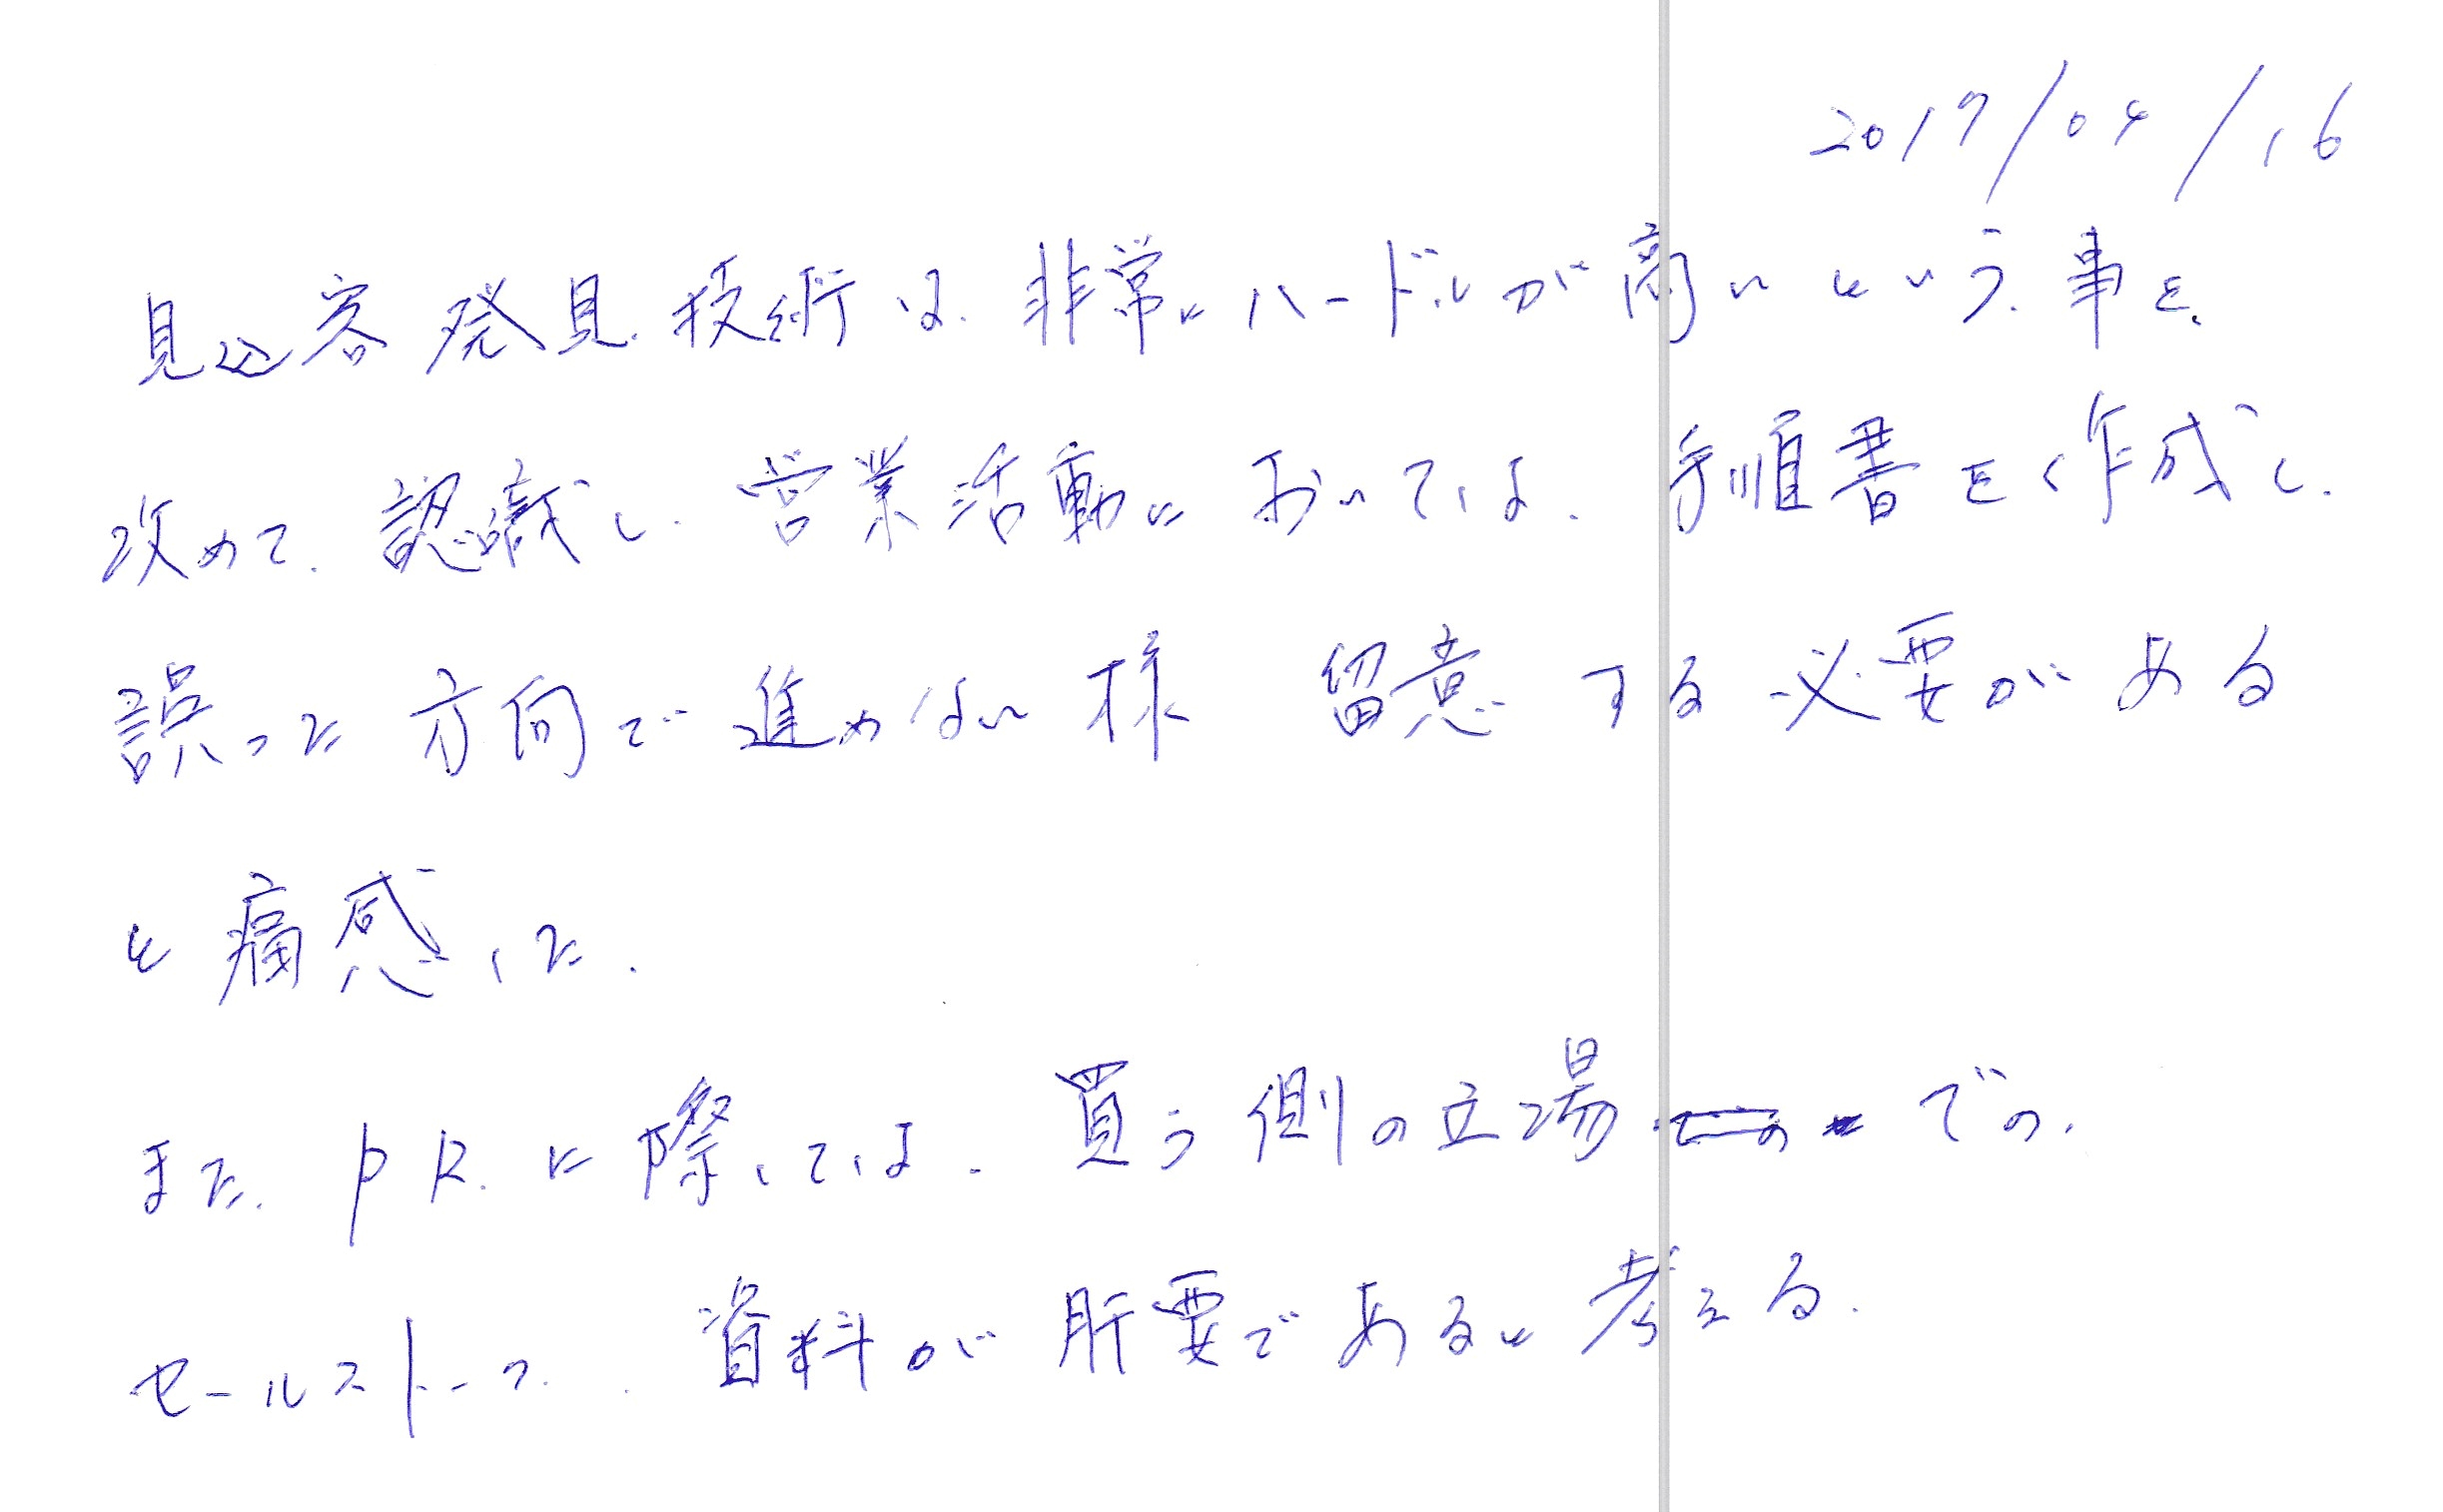 2017/04/16
見込客発見、技術は、非常にハードルが高いという、事を、
改めて、認識し、営業活動においては、手順書をく作成し、
誤った方向で進めない様 留意する必要がある
と痛感した。
また、PR、に際しては、買う側の立場での、
セールストーク、資料が肝要であると考える。